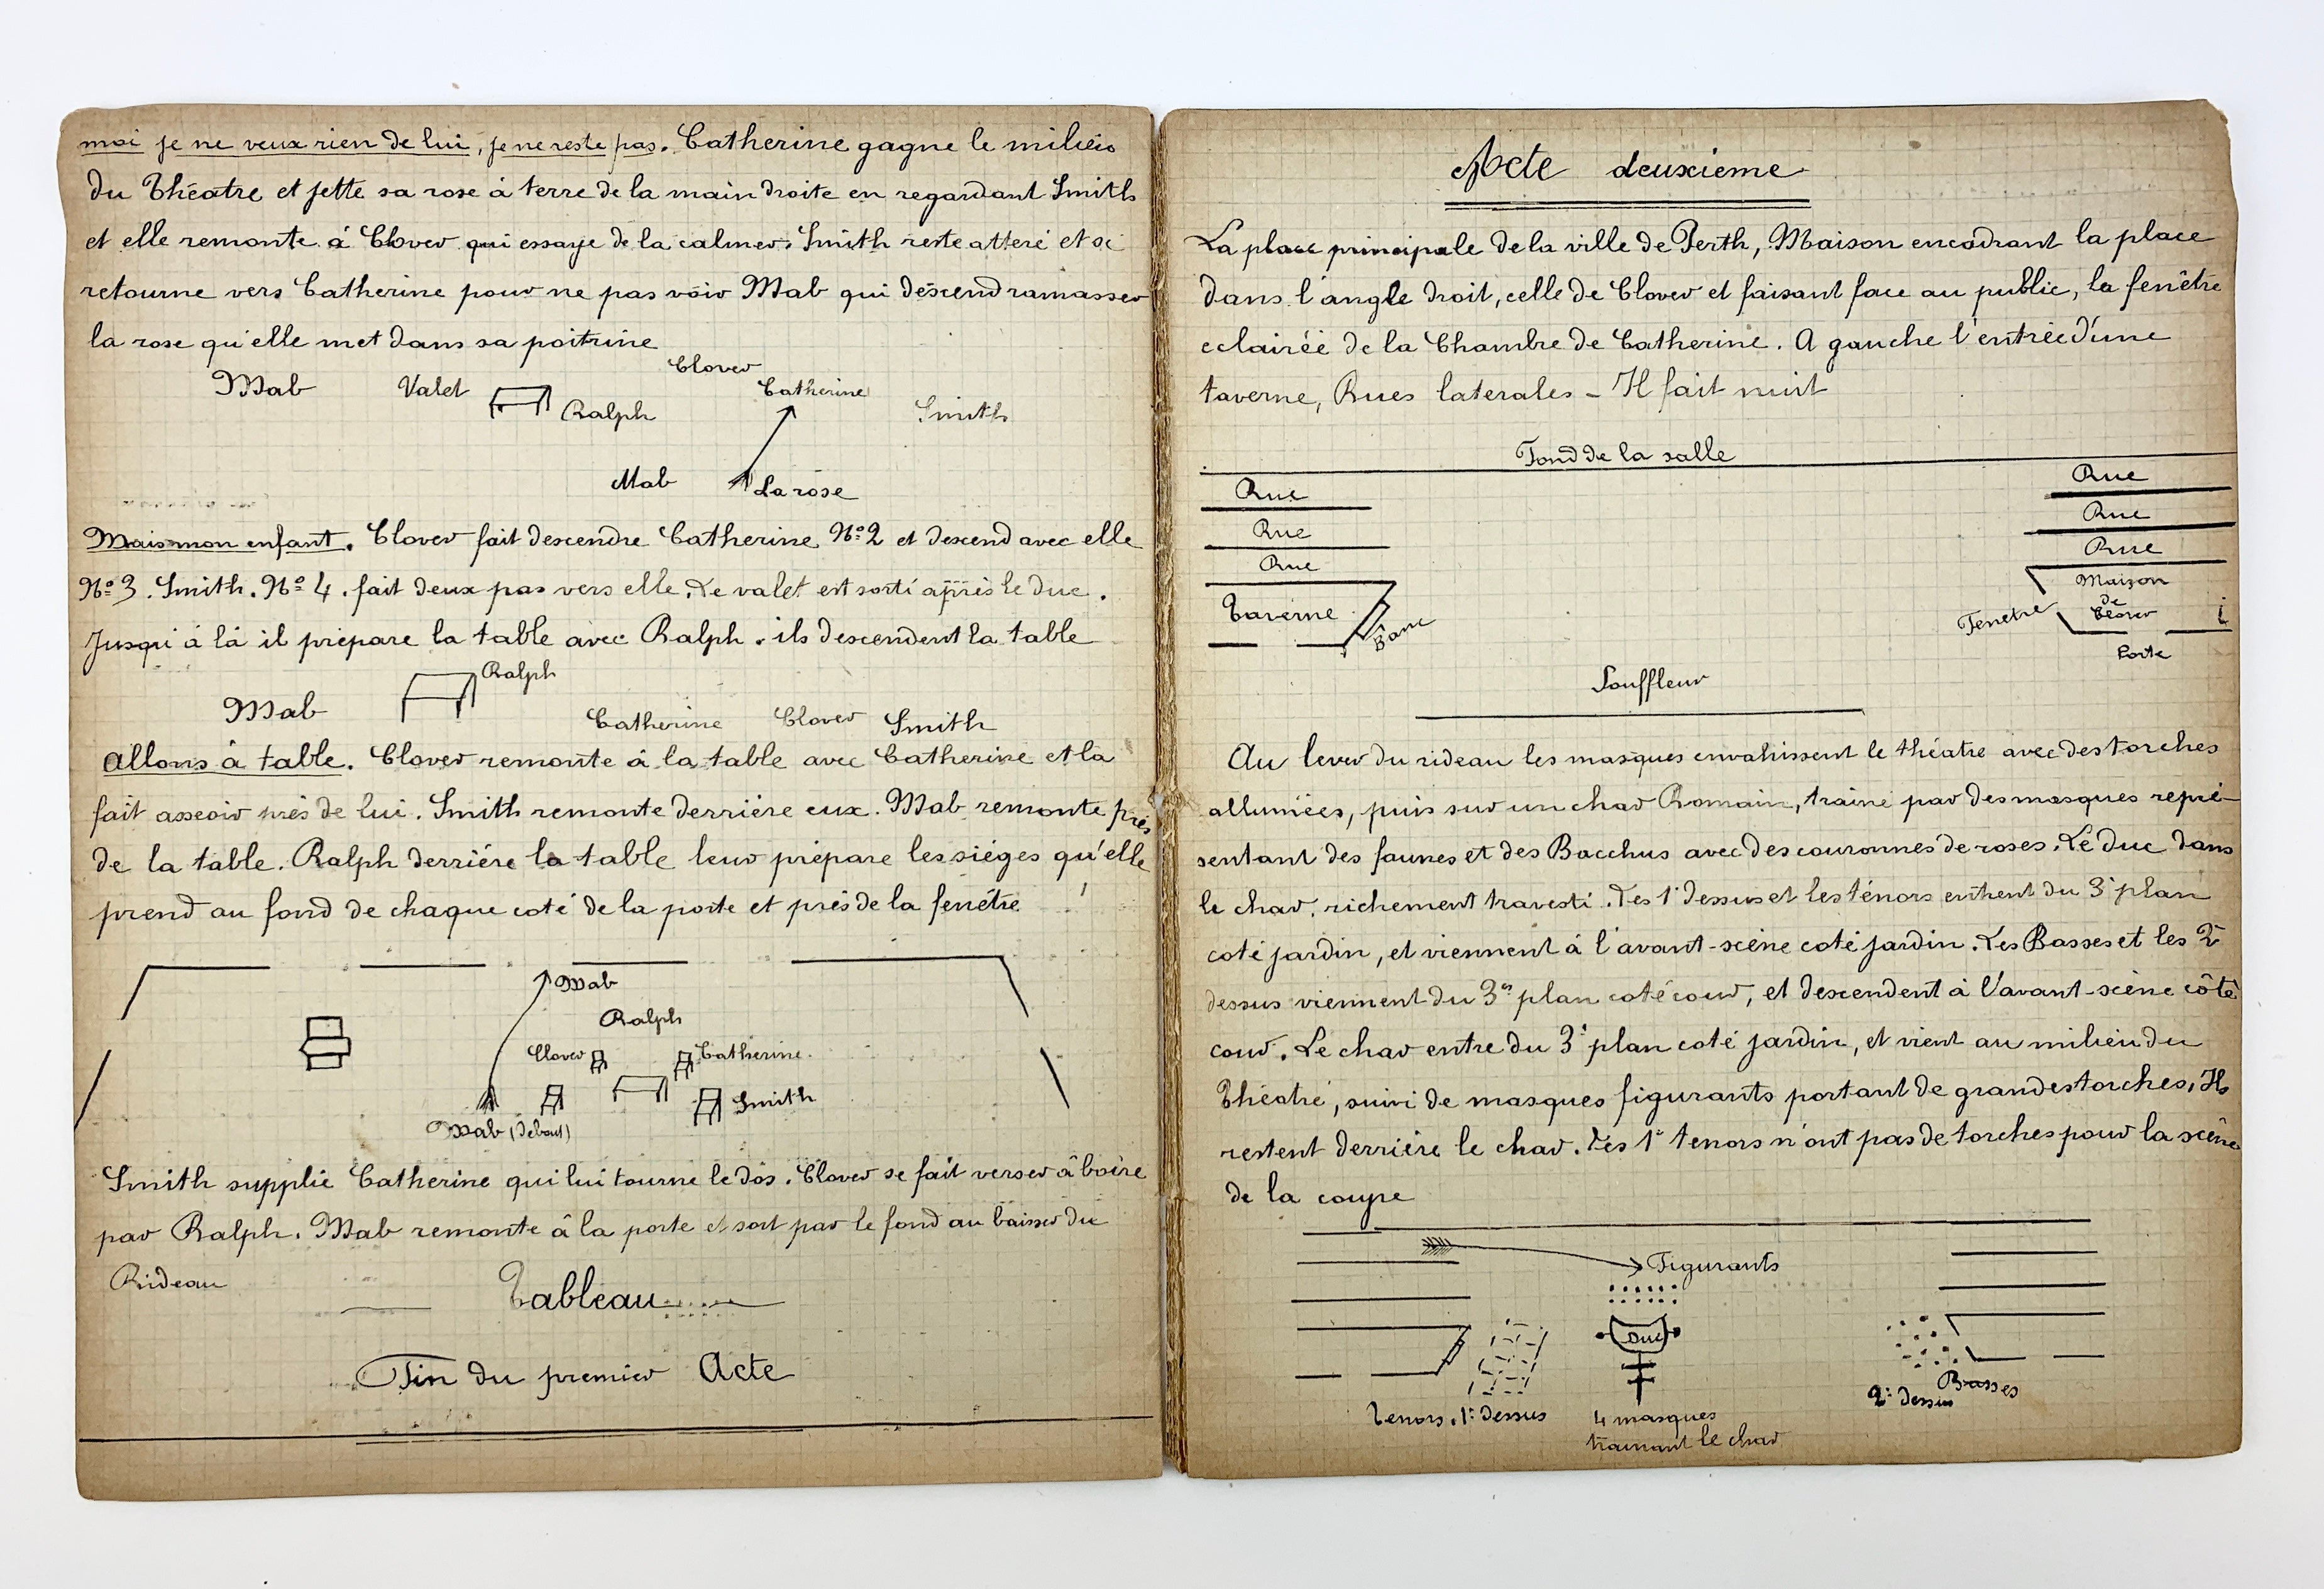 moi je ne veux rien de lui, je ne reste pas. Catherine gagne le milieu
du Théatre et jette sa rose à terre de la main droite en regardant Smith
et elle remonte à Clover qui essaye de la calmer. Smith reste atteré et se
retourne vers Catherine pour ne pas voir Mab qui descend ramasser
la rose qu'elle met dans sa poitrine
Clover
Mab Valet Catherine
Ralph Smith
Mab La rose
Mais mon enfant. Clover fait descendre Catherine Nº 2 et descend avec elle
Nº 3. Smith. Nº 4. fait deux pas vers elle. Le valet est sorti après le duc.
Jusqu'à là il prépare la table avec Ralph. ils descendent la table
Ralph
Mab
Catherine Clover Smith
Allons à table. Clover remonte à la table avec Catherine et la
fait asseoir près de lui. Smith remonte derrière eux. Mab remonte près
de la table. Ralph derrière la table leur prépare les siéges qu'elle
prend au fond de chaque coté de la porte et près de la fenêtre
Mab
Ralph
Clover Catherine.
Smith
Mab (debout)
Smith supplie Catherine qui lui tourne le dos. Clover se fait verser à boire
par Ralph. Mab remonte à la porte et sort par le fond au baisser du
Rideau
Tableau
Fin du premier Acte
Acte deuxième
La place principale de la ville de Perth, Maison encadrant la place
dans l'angle droit, celle de Clover et faisant face au public, la fenêtre
eclairée de la Chambre de Catherine. A gauche l'entrée d'une
taverne, Rues laterales - Il fait nuit
Fond de la salle
Rue Rue
Rue Rue
Rue Rue
Taverne Banc Fenetre Maison
de
Clover
Porte
Souffleur
Au lever du rideau les masques envahissent le théatre avec des torches
allumées, puis sur un char Romain, traîné par des masques repré-
sentant des faunes et des Bacchus avec des couronnes de roses. Le Duc dans
le char, richement travesti. Les 1r dessus et les ténors entrent du 3e plan
coté jardin, et viennent à l'avant-scène coté jardin. Les Basses et les 2e
dessus viennent du 3e plan coté cour, et descendent à l'avant-scène côté
cour. Le char entre du 3e plan coté jardin, et vient au milieu du
Théatre, suivi de masques figurants portant de grandes torches, Ils
restent derrière le char. Les 1r tenors n'ont pas de torches pour la scène
de la coupe
Figurants
Duc
Tenors. 1r Dessus 4 masques
trainant le char
2e dessus Basses